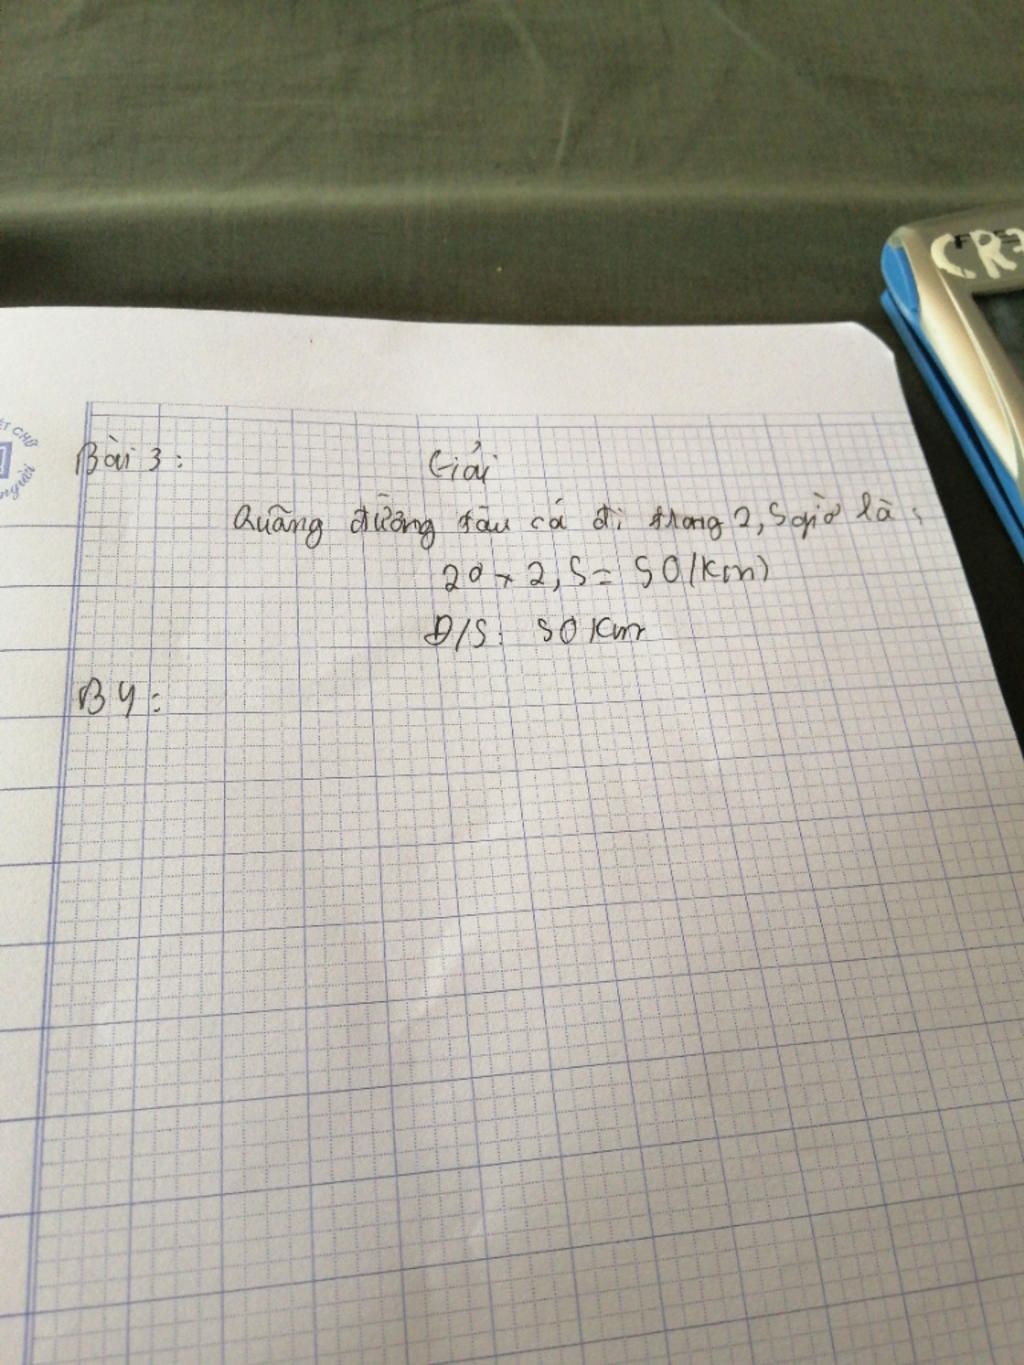 CR7
ẾT CHỮ
người
Bài 3: Giải
Quãng đường tàu cá đi trong 2,5 giờ là:
20 x 2,5 = 50 (km)
Đ/S: 50 km
B4: